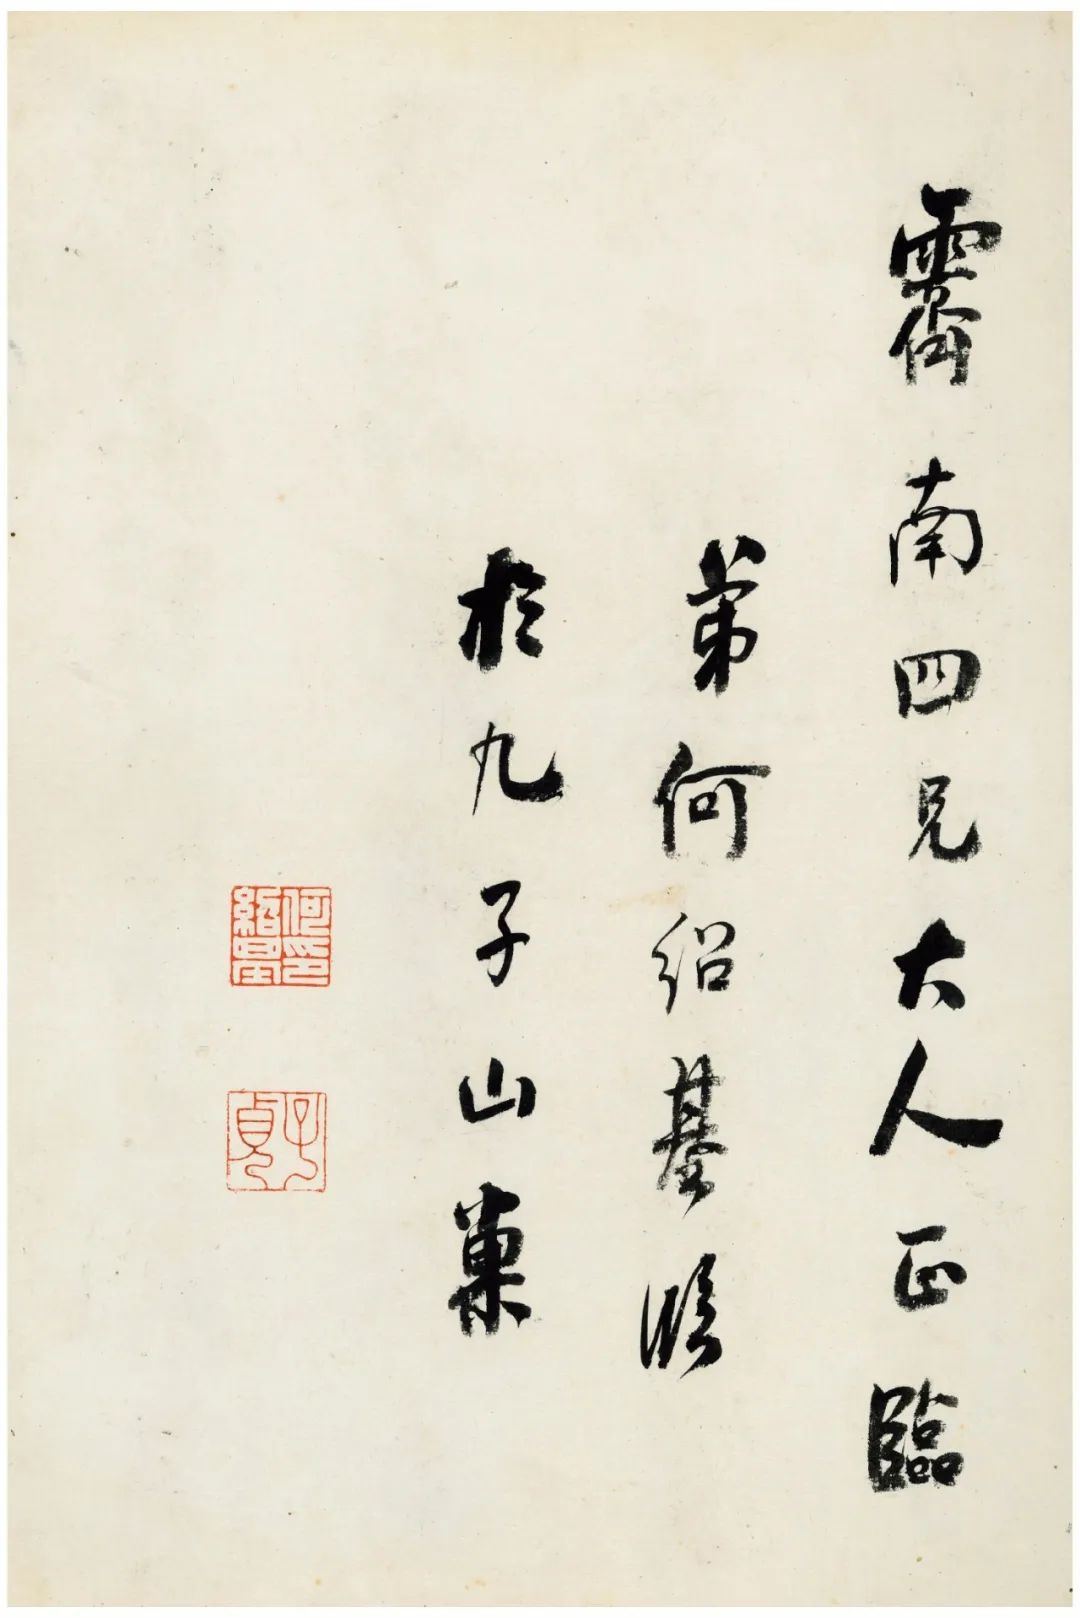 霽南四兄大人正臨
弟何紹基
於九子山巢
何紹基印
子貞